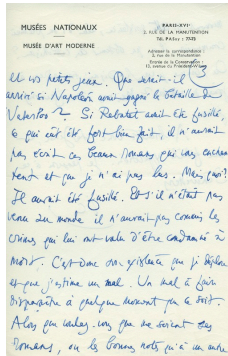 MUSÉES NATIONAUX
MUSÉE D'ART MODERNE
PARIS-XVIᵉ
2, RUE DE LA MANUTENTION
Adresser la correspondance :
2, rue de la Manutention
Entrée de la Conservation :
3
et vos petits jeux. Que serait-il
arrivé si Napoléon avait gagné la bataille de
Waterloo ? Si Rebatet avait été fusillé,
ce qui eût été fort bien fait, il n'aurait
pas écrit ces beaux romans qui vous enchan
tent et que je n'ai pas lus. Mais quoi ?
Il aurait été fusillé. Et s'il n'était pas
venu au monde il n'aurait pas commis les
crimes qui lui ont valu d'être condamné à
mort. C'est donc son existence que je déplore
et que j'estime un mal. Un mal à faire
disparaître à quelque moment que ce soit.
Alors que voulez-vous que me soient ses
romans, ou les bonnes notes qu'à un autre